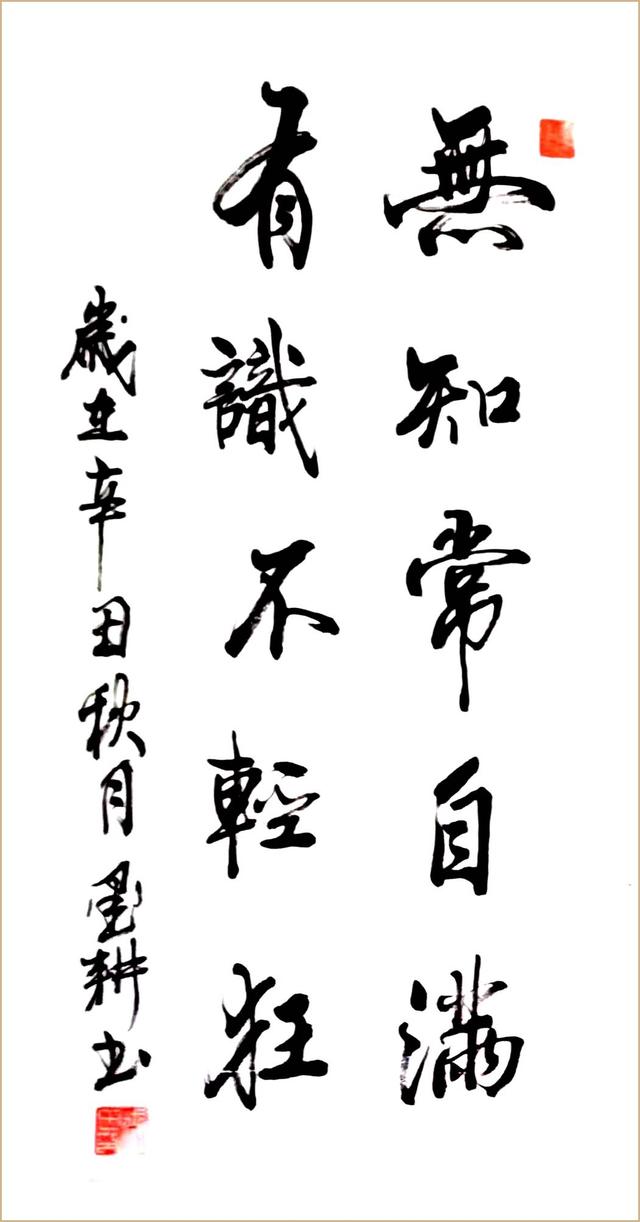 無知常自滿
有識不輕狂
歲在辛丑秋月墨耕书